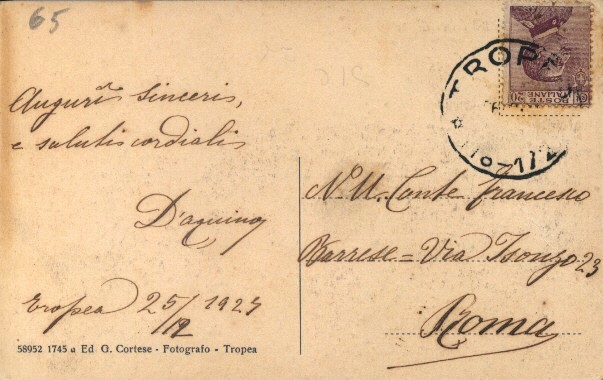 65
Auguri sinceri,
e saluti cordiali
D'Aquino
Tropea 25/12 1927
58952 1745 a Ed G. Cortese - Fotografo - Tropea
TROPEA
POSTE
ITALIANE
N. U. Conte Francesco
Barrese = Via Isonzo 23
Roma